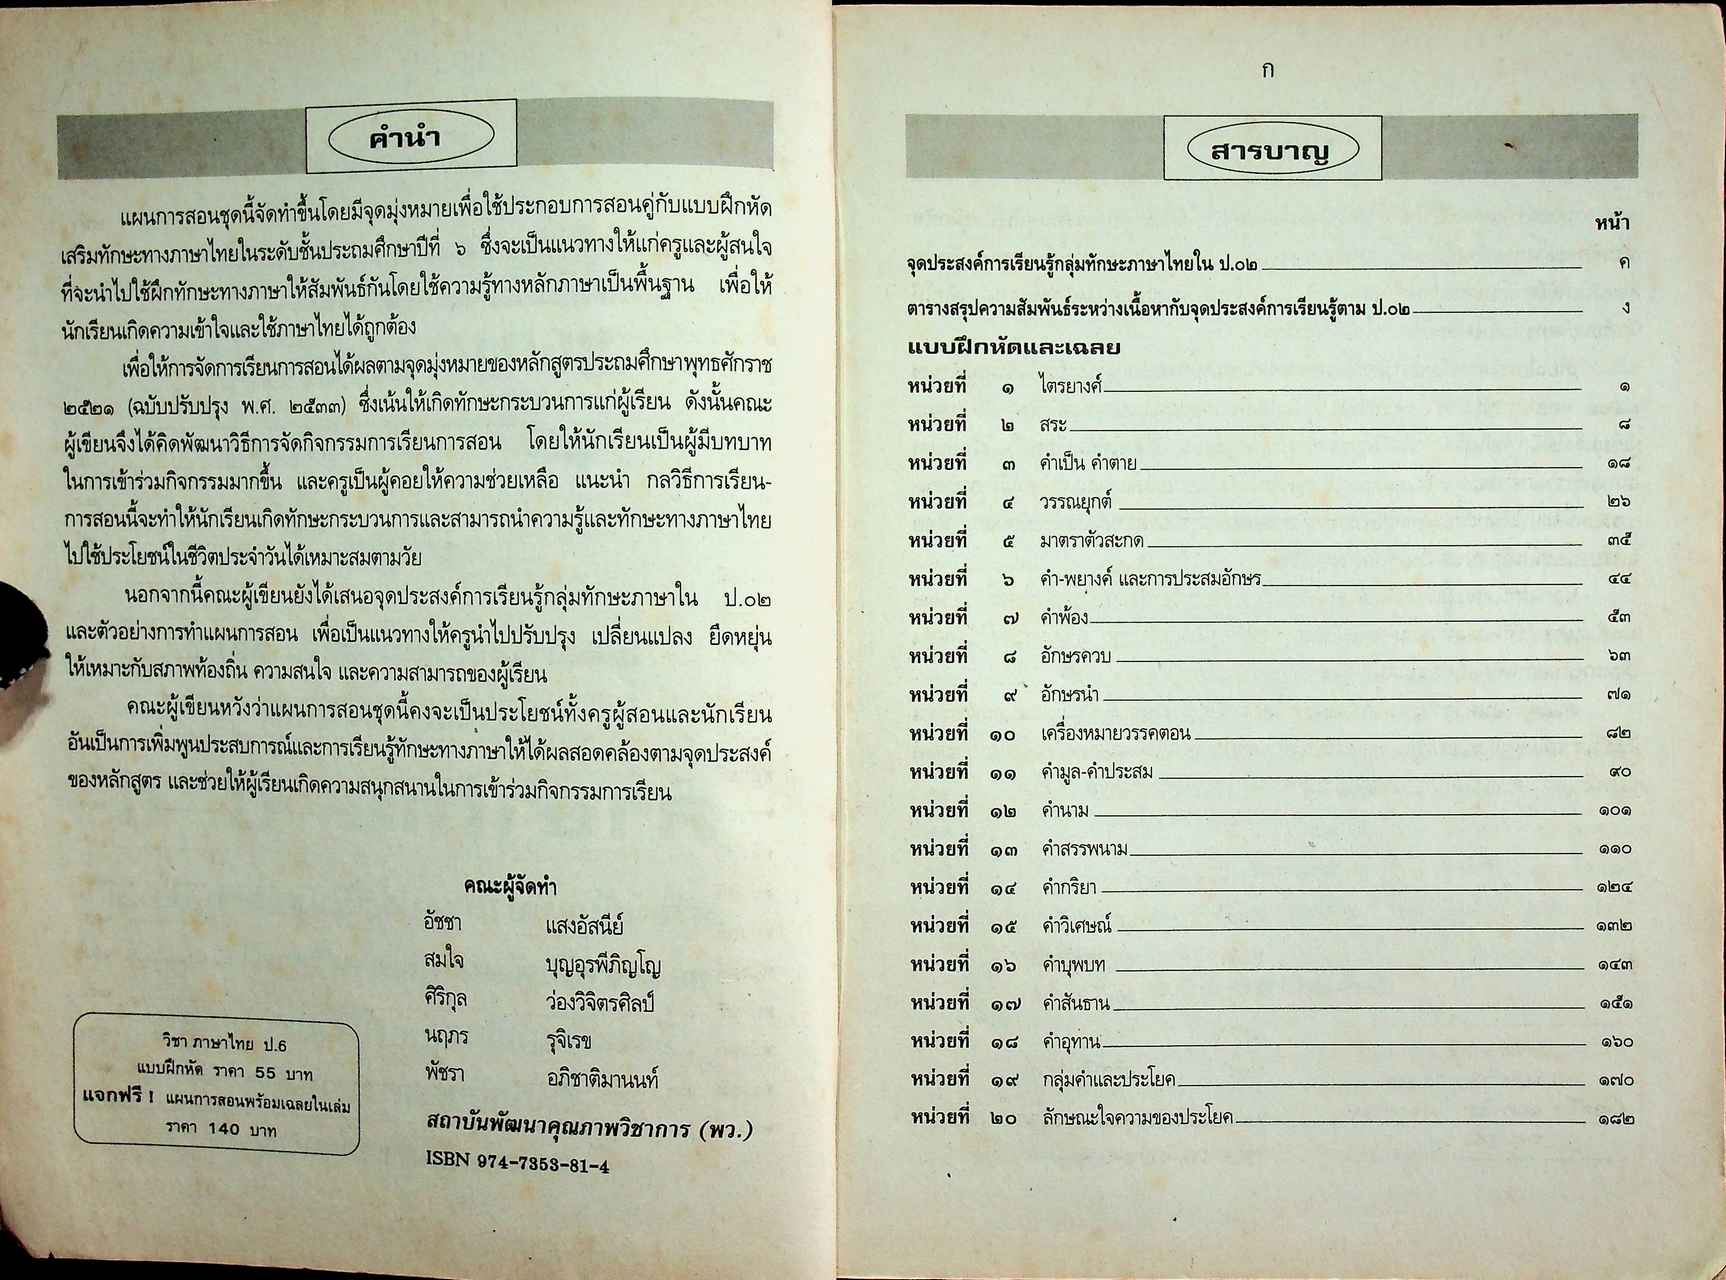 คำนำ
แผนการสอนชุดนี้จัดทำขึ้นโดยมีจุดมุ่งหมายเพื่อใช้ประกอบการสอนคู่กับแบบฝึกหัด
เสริมทักษะทางภาษาไทยในระดับชั้นประถมศึกษาปีที่ ๖ ซึ่งจะเป็นแนวทางให้แก่ครูและผู้สนใจ
ที่จะนำไปใช้ฝึกทักษะทางภาษาให้สัมพันธ์กันโดยใช้ความรู้ทางหลักภาษาเป็นพื้นฐาน เพื่อให้
นักเรียนเกิดความเข้าใจและใช้ภาษาไทยได้ถูกต้อง
เพื่อให้การจัดการเรียนการสอนได้ผลตามจุดมุ่งหมายของหลักสูตรประถมศึกษาพุทธศักราช
๒๕๒๑ (ฉบับปรับปรุง พ.ศ. ๒๕๓๓) ซึ่งเน้นให้เกิดทักษะกระบวนการแก่ผู้เรียน ดังนั้นคณะ
ผู้เขียนจึงได้คิดพัฒนาวิธีการจัดกิจกรรมการเรียนการสอน โดยให้นักเรียนเป็นผู้มีบทบาท
ในการเข้าร่วมกิจกรรมมากขึ้น และครูเป็นผู้คอยให้ความช่วยเหลือ แนะนำ กลวิธีการเรียน-
การสอนนี้จะทำให้นักเรียนเกิดทักษะกระบวนการและสามารถนำความรู้และทักษะทางภาษาไทย
ไปใช้ประโยชน์ในชีวิตประจำวันได้เหมาะสมตามวัย
นอกจากนี้คณะผู้เขียนยังได้เสนอจุดประสงค์การเรียนรู้กลุ่มทักษะภาษาใน ป.๐๒
และตัวอย่างการทำแผนการสอน เพื่อเป็นแนวทางให้ครูนำไปปรับปรุง เปลี่ยนแปลง ยืดหยุ่น
ให้เหมาะกับสภาพท้องถิ่น ความสนใจ และความสามารถของผู้เรียน
คณะผู้เขียนหวังว่าแผนการสอนชุดนี้คงจะเป็นประโยชน์ทั้งครูผู้สอนและนักเรียน
อันเป็นการเพิ่มพูนประสบการณ์และการเรียนรู้ทักษะทางภาษาให้ได้ผลสอดคล้องตามจุดประสงค์
ของหลักสูตร และช่วยให้ผู้เรียนเกิดความสนุกสนานในการเข้าร่วมกิจกรรมการเรียน
คณะผู้จัดทำ
อัชชา แสงอัสนีย์
สมใจ บุญอุรพีภิญโญ
ศิริกุล ว่องวิจิตรศิลป์
นฤภร รุจิเรข
พัชรา อภิชาติมานนท์
สถาบันพัฒนาคุณภาพวิชาการ (พว.)
ISBN 974-7353-81-4
วิชา ภาษาไทย ป.6
แบบฝึกหัด ราคา 55 บาท
แจกฟรี ! แผนการสอนพร้อมเฉลยในเล่ม
ราคา 140 บาท
ก
สารบาญ
หน้า
จุดประสงค์การเรียนรู้กลุ่มทักษะภาษาไทยใน ป.๐๒ ค
ตารางสรุปความสัมพันธ์ระหว่างเนื้อหากับจุดประสงค์การเรียนรู้ตาม ป.๐๒ ง
แบบฝึกหัดและเฉลย
หน่วยที่ ๑ ไตรยางศ์ ๑
หน่วยที่ ๒ สระ ๘
หน่วยที่ ๓ คำเป็น คำตาย ๑๘
หน่วยที่ ๔ วรรณยุกต์ ๒๖
หน่วยที่ ๕ มาตราตัวสะกด ๓๕
หน่วยที่ ๖ คำ-พยางค์ และการประสมอักษร ๔๔
หน่วยที่ ๗ คำพ้อง ๕๓
หน่วยที่ ๘ อักษรควบ ๖๓
หน่วยที่ ๙ อักษรนำ ๗๑
หน่วยที่ ๑๐ เครื่องหมายวรรคตอน ๘๒
หน่วยที่ ๑๑ คำมูล-คำประสม ๙๐
หน่วยที่ ๑๒ คำนาม ๑๐๑
หน่วยที่ ๑๓ คำสรรพนาม ๑๑๐
หน่วยที่ ๑๔ คำกริยา ๑๒๔
หน่วยที่ ๑๕ คำวิเศษณ์ ๑๓๒
หน่วยที่ ๑๖ คำบุพบท ๑๔๓
หน่วยที่ ๑๗ คำสันธาน ๑๕๑
หน่วยที่ ๑๘ คำอุทาน ๑๖๐
หน่วยที่ ๑๙ กลุ่มคำและประโยค ๑๗๐
หน่วยที่ ๒๐ ลักษณะใจความของประโยค ๑๘๒